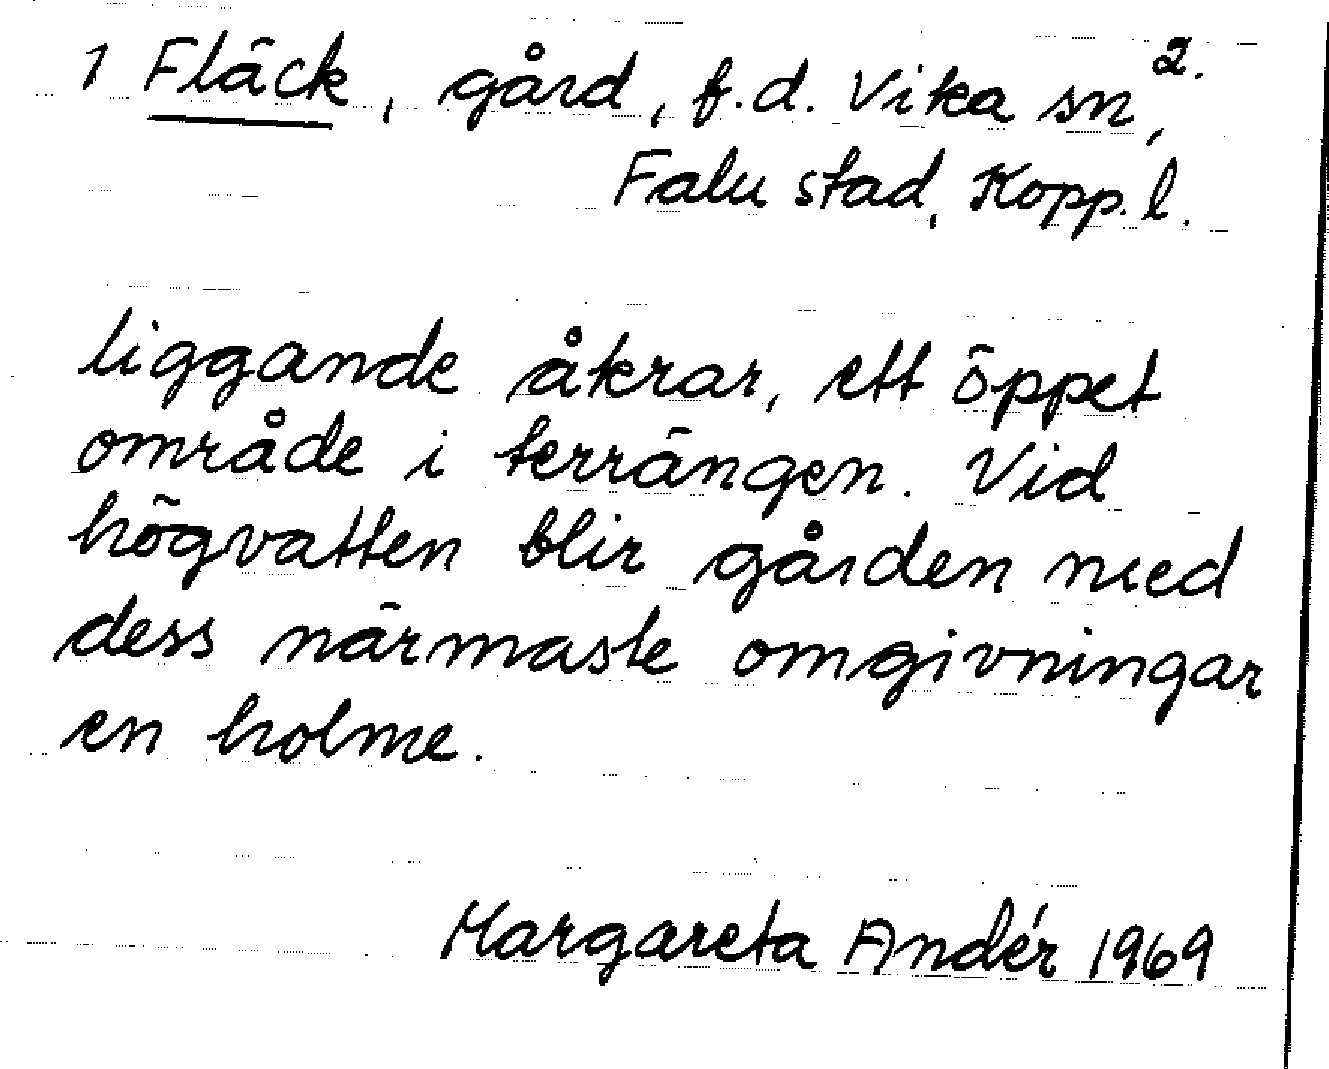 1 Fläck, gård, f.d. Vika sn, 2.
Falu stad, Kopp. l.
liggande åkrar, ett öppet
område i terrängen. Vid
högvatten blir gården med
dess närmaste omgivningar
en holme.
Margareta Andér 1969